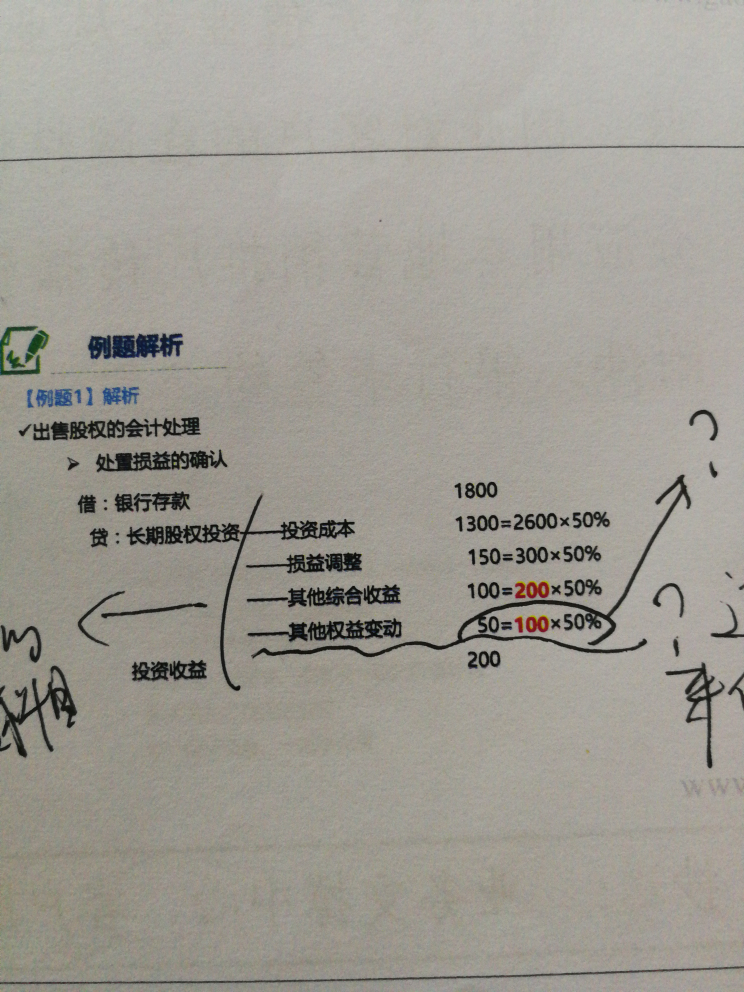 例题解析
【例题1】解析
✓出售股权的会计处理
➢ 处置损益的确认
借：银行存款 1800
贷：长期股权投资——投资成本 1300=2600×50%
——损益调整 150=300×50%
——其他综合收益 100=200×50%
——其他权益变动 50=100×50%
投资收益 200
?
?
科目
www